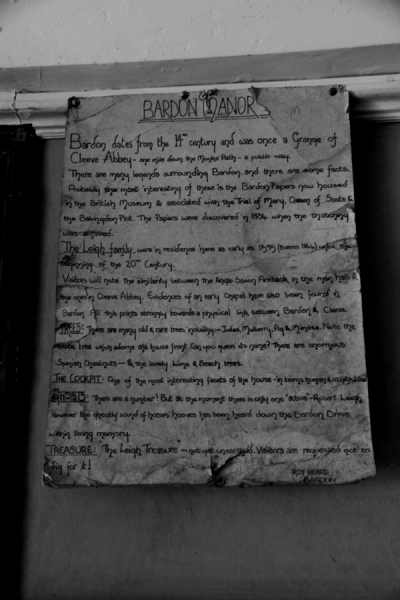 BARDON MANOR
Bardon dates from the 14th century and was once a Grange of
Cleeve Abbey - one mile down the Monks Path - a public way.
There are many legends surrounding Bardon, and there are some facts.
Probably the most interesting of these is the Bardon Papers now housed
in the British Museum & associated with the Trial of Mary, Queen of Scots &
the Babington Plot. The Papers were discovered in 1834, when the thatching
was
The Leigh family, were in residence here as early as until the
beginning of the 20th Century.
Visitors will note the similarity between the Anglo Saxon Fireback, in the main hall &
the one in Cleeve Abbey. Evidences of an early Chapel have also been found in
Bardon. All this points strongly towards a physical link between Bardon & Cleeve
TREES: There are many old & rare trees including:- Judas, Mulberry, Fig & Mimosa. Note the
tree which adorns the house front. Can you guess its name? There are enormous
Spanish Chestnuts - & the lovely Lime & Beech trees.
THE COCKPIT: One of the most interesting facets of the house - in terms human &
GHOSTS: There are a number! But at the moment there is only one "active" - Robert Leigh.
However the ghostly sound of horses' hooves has been heard down the Bardon Drive
within living memory.
TREASURE: "The Leigh Treasure" - not yet unearthed. Visitors are requested not to
dig for it!
ROY HEARD
BARDON